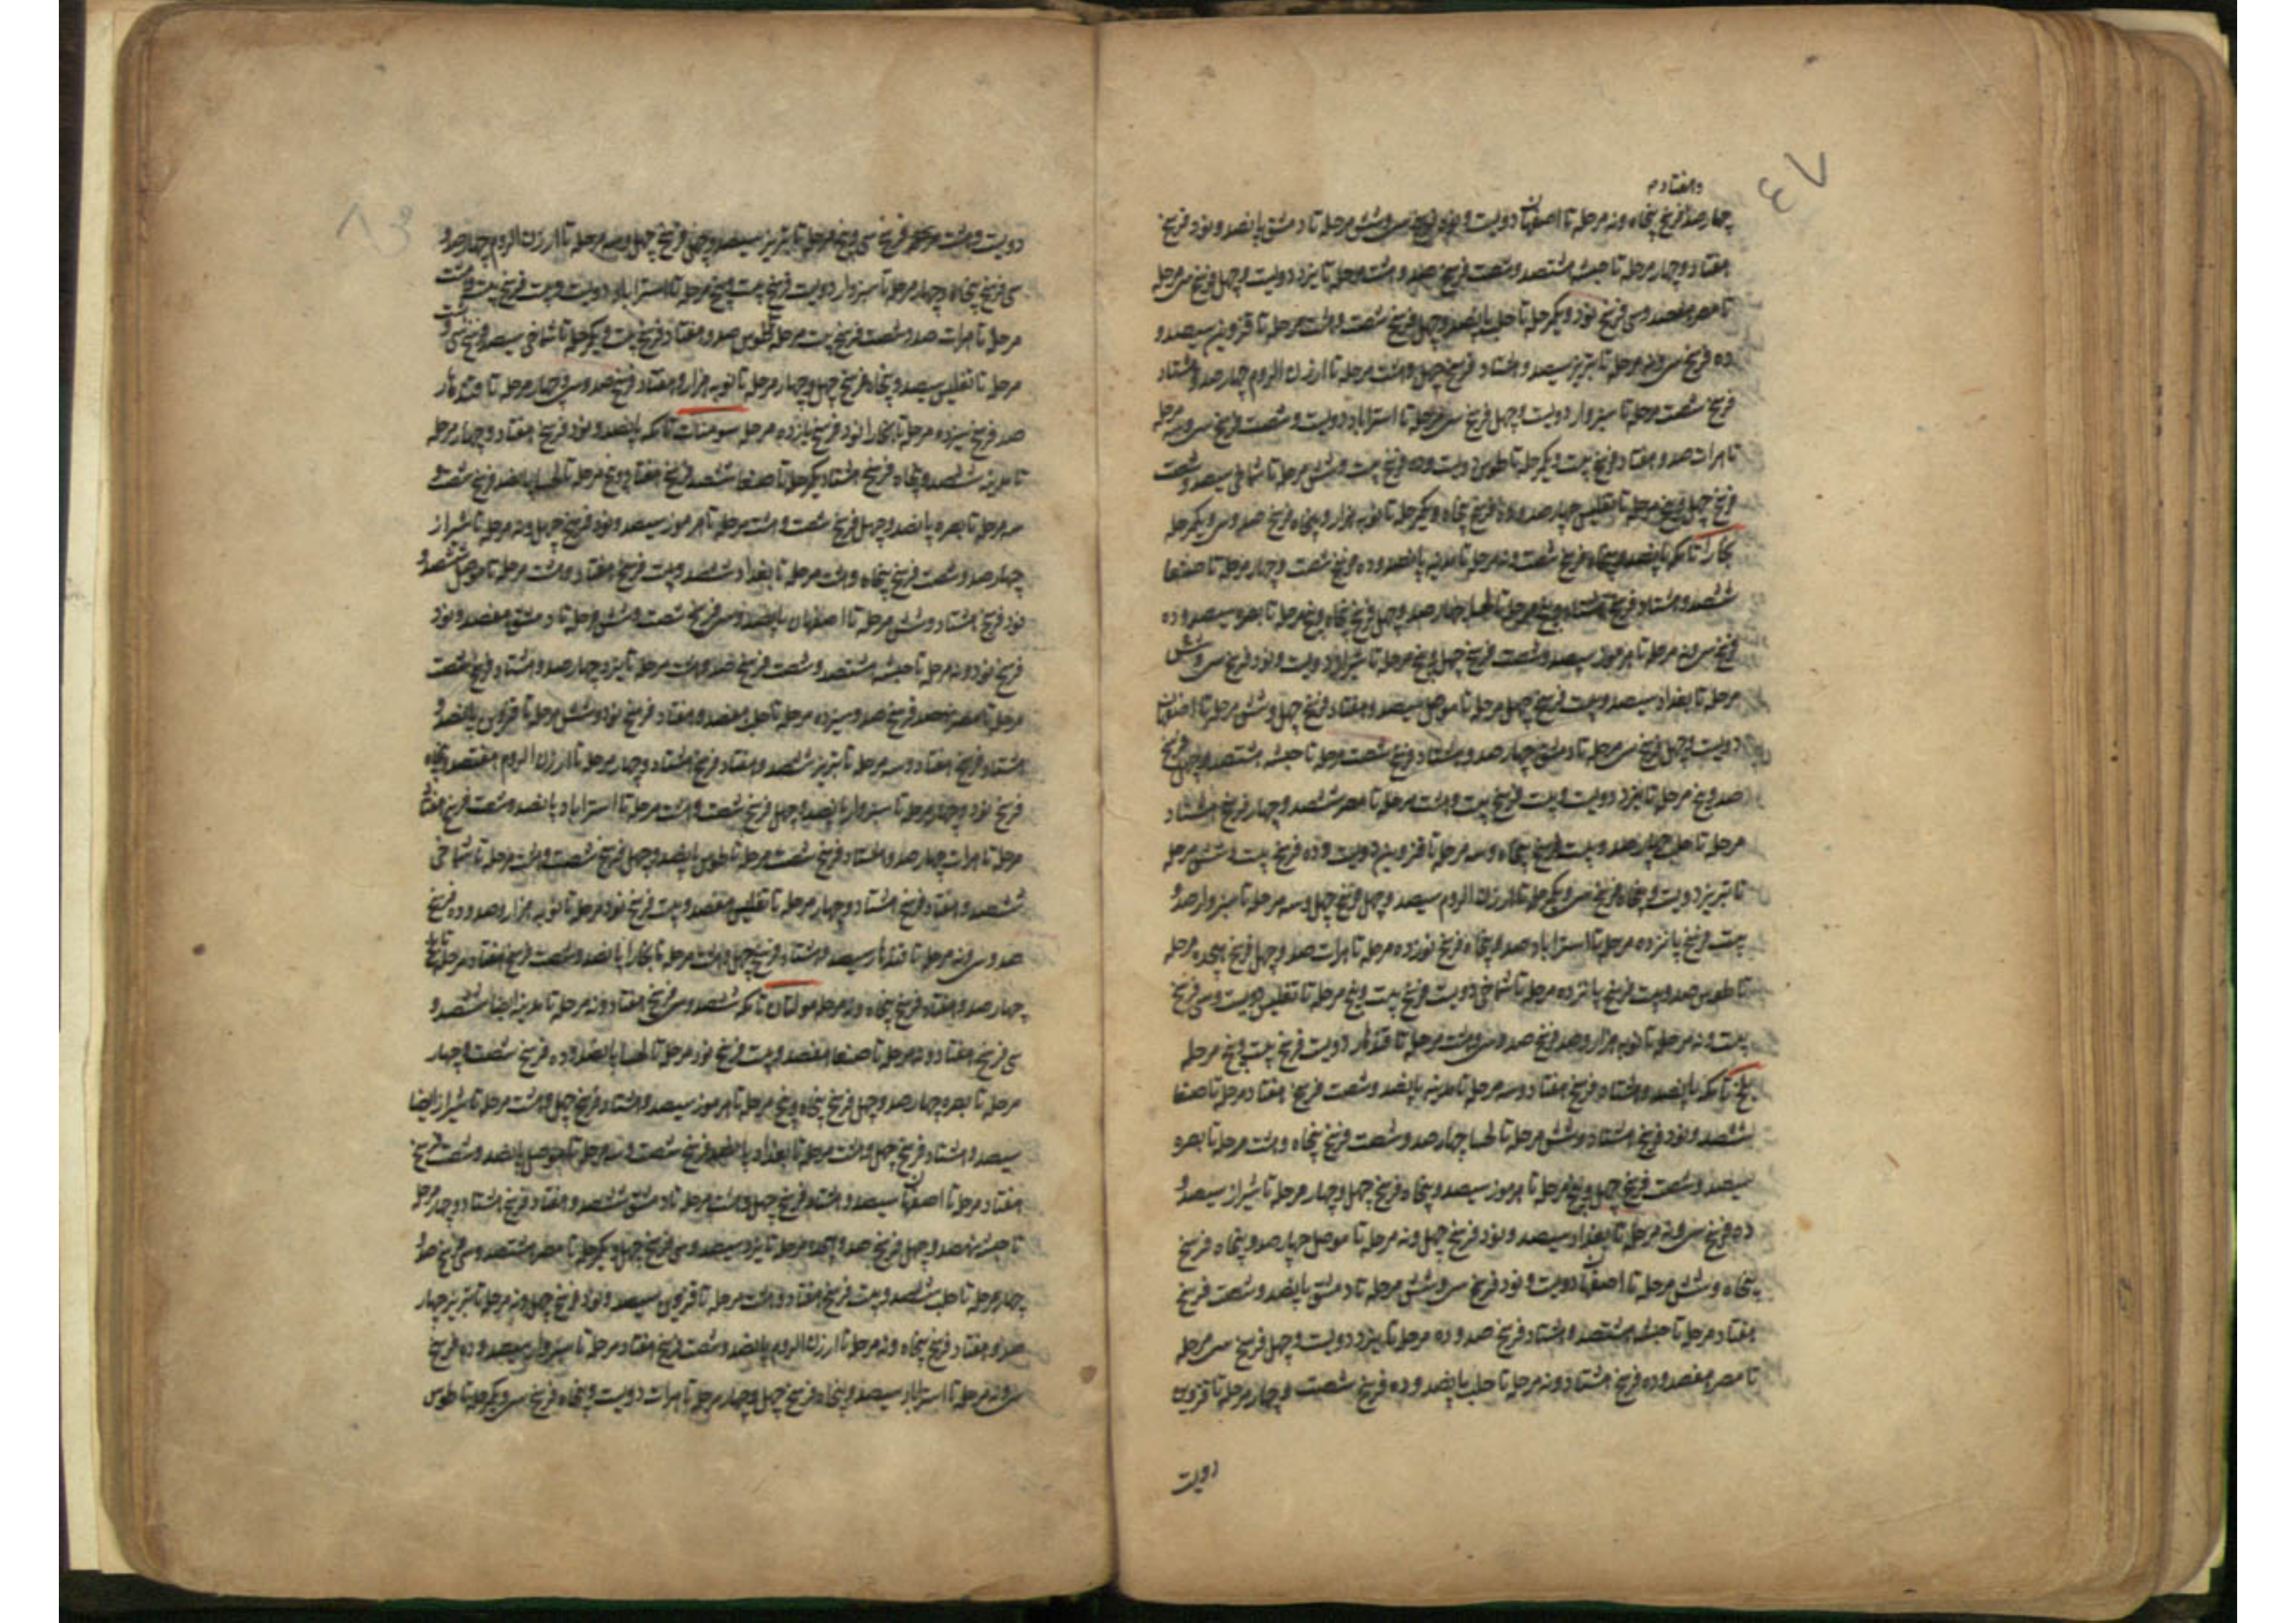 و هفتاد و
چهارصد فرسخ پنجاه و نه مرحله تا اصفهان دویست و نود فرسخ سی و شش مرحله تا دمشق پانصد و نود فرسخ
هفتاد و چهار مرحله تا حبشه هشتصد و شصت فرسخ صد و هشت مرحله تا یزد دویست و چهل فرسخ سی مرحله
تا مصر هفتصد و سی فرسخ نود و یکمرحله تا حلب پانصد و چهل فرسخ شصت و هشت مرحله تا قزوین سیصد و
ده فرسخ سی و نه مرحله تا تبریز سیصد و هشتاد فرسخ چهل و هشت مرحله تا ارزن الروم چهارصد و هشتاد
فرسخ شصت مرحله تا سبزوار دویست و چهل فرسخ سی مرحله تا استراباد دویست و شصت فرسخ سی و سه مرحله
تا هرات صد و هفتاد فرسخ بیست و یکمرحله تا طوس دویست و ده فرسخ بیست و شش مرحله تا شماخی سیصد و شصت
فرسخ چهل و پنج مرحله تا تفلیس چهارصد و ده فرسخ پنجاه و یکمرحله تا نوبه هزار و پنجاه فرسخ صد و سی و یکمرحله
بخارا تا مکه پانصد و پنجاه فرسخ شصت و نه مرحله تا مدینه پانصد و ده فرسخ شصت و چهار مرحله تا صنعا
ششصد و هشتاد فرسخ هشتاد و پنج مرحله تا لحسا چهارصد و چهل فرسخ پنجاه و پنج مرحله تا بصره سیصد و ده
فرسخ سی و نه مرحله تا هرموز سیصد و شصت فرسخ چهل و پنج مرحله تا شیراز دویست و نود فرسخ سی و شش
مرحله تا بغداد سیصد و بیست فرسخ چهل مرحله تا موصل سیصد و هفتاد فرسخ چهل و شش مرحله تا اصفهان
دویست و چهل فرسخ سی مرحله تا دمشق چهارصد و هشتاد فرسخ شصت مرحله تا حبشه هشتصد و چهل فرسخ
صد و پنج مرحله تا یزد دویست و بیست فرسخ بیست و هشت مرحله تا مصر ششصد و چهار فرسخ هشتاد
مرحله تا حلب چهارصد و بیست فرسخ پنجاه و سه مرحله تا قزوین دویست و ده فرسخ بیست و شش مرحله
تا تبریز دویست و پنجاه فرسخ سی و یکمرحله تا ارزن الروم سیصد و چهل فرسخ چهل و سه مرحله تا سبزوار صد و
بیست فرسخ پانزده مرحله تا استراباد صد و پنجاه فرسخ نوزده مرحله تا هرات صد و چهل فرسخ هجده مرحله
تا طوس صد و بیست فرسخ پانزده مرحله تا شماخی دویست فرسخ بیست و پنج مرحله تا تفلیس دویست و سی فرسخ
بیست و نه مرحله تا نوبه هزار و صد فرسخ صد و سی و هشت مرحله تا قندهار دویست فرسخ بیست و پنج مرحله
بلخ تا مکه پانصد و هشتاد فرسخ هفتاد و سه مرحله تا مدینه پانصد و شصت فرسخ هفتاد مرحله تا صنعا
ششصد و نود فرسخ هشتاد و شش مرحله تا لحسا چهارصد و شصت فرسخ پنجاه و هشت مرحله تا بصره
سیصد و شصت فرسخ چهل و پنج مرحله تا هرموز سیصد و پنجاه فرسخ چهل و چهار مرحله تا شیراز سیصد و
ده فرسخ سی و نه مرحله تا بغداد سیصد و نود فرسخ چهل و نه مرحله تا موصل چهارصد و پنجاه فرسخ
پنجاه و شش مرحله تا اصفهان دویست و نود فرسخ سی و شش مرحله تا دمشق پانصد و شصت فرسخ
هفتاد مرحله تا حبشه هشتصد و هشتاد فرسخ صد و ده مرحله تا یزد دویست و چهل فرسخ سی مرحله
تا مصر هفتصد و ده فرسخ هشتاد و نه مرحله تا حلب پانصد و ده فرسخ شصت و چهار مرحله تا قزوین
دویست
دویست و هشت فرسخ سی و پنج مرحله تا تبریز سیصد و چهل فرسخ چهل و سه مرحله تا ارزن الروم چهارصد و
سی فرسخ پنجاه و چهار مرحله تا سبزوار دویست فرسخ بیست و پنج مرحله تا استراباد دویست و بیست فرسخ بیست و هشت
مرحله تا هرات صد و شصت فرسخ بیست مرحله تا طوس صد و هفتاد فرسخ بیست و یکمرحله تا شماخی سیصد فرسخ سی و هشت
مرحله تا تفلیس سیصد و پنجاه فرسخ چهل و چهار مرحله تا نوبه هزار و هفتاد فرسخ صد و سی و چهار مرحله تا قندهار
صد فرسخ سیزده مرحله تا بخارا نود فرسخ یازده مرحله سومنات تا مکه پانصد و نود فرسخ هفتاد و چهار مرحله
تا مدینه ششصد و پنجاه فرسخ هشتاد و یکمرحله تا صنعا ششصد فرسخ هفتاد و پنج مرحله تا لحسا پانصد فرسخ شصت و
سه مرحله تا بصره پانصد و چهل فرسخ شصت و هشت مرحله تا هرموز سیصد و نود فرسخ چهل و نه مرحله تا شیراز
چهارصد و شصت فرسخ پنجاه و هشت مرحله تا بغداد ششصد و بیست فرسخ هفتاد و هشت مرحله تا موصل ششصد و
نود فرسخ هشتاد و شش مرحله تا اصفهان پانصد و سی فرسخ شصت و شش مرحله تا دمشق هفتصد و نود
فرسخ نود و نه مرحله تا حبشه هشتصد و شصت فرسخ صد و هشت مرحله تا یزد چهارصد و هشتاد فرسخ شصت
مرحله تا مصر نهصد فرسخ صد و سیزده مرحله تا حلب هفتصد و هفتاد فرسخ نود و شش مرحله تا قزوین پانصد و
هشتاد فرسخ هفتاد و سه مرحله تا تبریز ششصد و هفتاد فرسخ هشتاد و چهار مرحله تا ارزن الروم هفتصد و پنجاه
فرسخ نود و چهار مرحله تا سبزوار پانصد و چهل فرسخ شصت و هشت مرحله تا استراباد پانصد و شصت فرسخ هفتاد
مرحله تا هرات چهارصد و هشتاد فرسخ شصت مرحله تا طوس پانصد و چهل فرسخ شصت و هشت مرحله تا شماخی
ششصد و هفتاد فرسخ هشتاد و چهار مرحله تا تفلیس هفتصد و بیست فرسخ نود مرحله تا نوبه هزار و صد و ده فرسخ
صد و سی و نه مرحله تا قندهار سیصد و هشتاد فرسخ چهل و هشت مرحله تا بخارا پانصد و شصت فرسخ هفتاد مرحله تا بلخ
چهارصد و هفتاد فرسخ پنجاه و نه مرحله مولتان تا مکه ششصد و سی فرسخ هفتاد و نه مرحله تا مدینه ایضا ششصد و
سی فرسخ هفتاد و نه مرحله تا صنعا هفتصد و بیست فرسخ نود مرحله تا لحسا پانصد و ده فرسخ شصت و چهار
مرحله تا بصره چهارصد و چهل فرسخ پنجاه و پنج مرحله تا هرموز سیصد و هشتاد فرسخ چهل و هشت مرحله تا شیراز ایضا
سیصد و هشتاد فرسخ چهل و هشت مرحله تا بغداد پانصد فرسخ شصت و سه مرحله تا موصل پانصد و شصت فرسخ
هفتاد مرحله تا اصفهان سیصد و هشتاد فرسخ چهل و هشت مرحله تا دمشق ششصد و هفتاد فرسخ هشتاد و چهار مرحله
تا حبشه نهصد و چهل فرسخ صد و هجده مرحله تا یزد سیصد و سی فرسخ چهل و یکمرحله تا مصر هشتصد و سی فرسخ صد و
چهار مرحله تا حلب ششصد و بیست فرسخ هفتاد و هشت مرحله تا قزوین سیصد و نود فرسخ چهل و نه مرحله تا تبریز چهار
صد و هفتاد فرسخ پنجاه و نه مرحله تا ارزن الروم پانصد و شصت فرسخ هفتاد مرحله تا سبزوار سیصد و ده فرسخ
سی و نه مرحله تا استراباد سیصد و پنجاه فرسخ چهل و چهار مرحله تا هرات دویست و پنجاه فرسخ سی و یکمرحله تا طوس